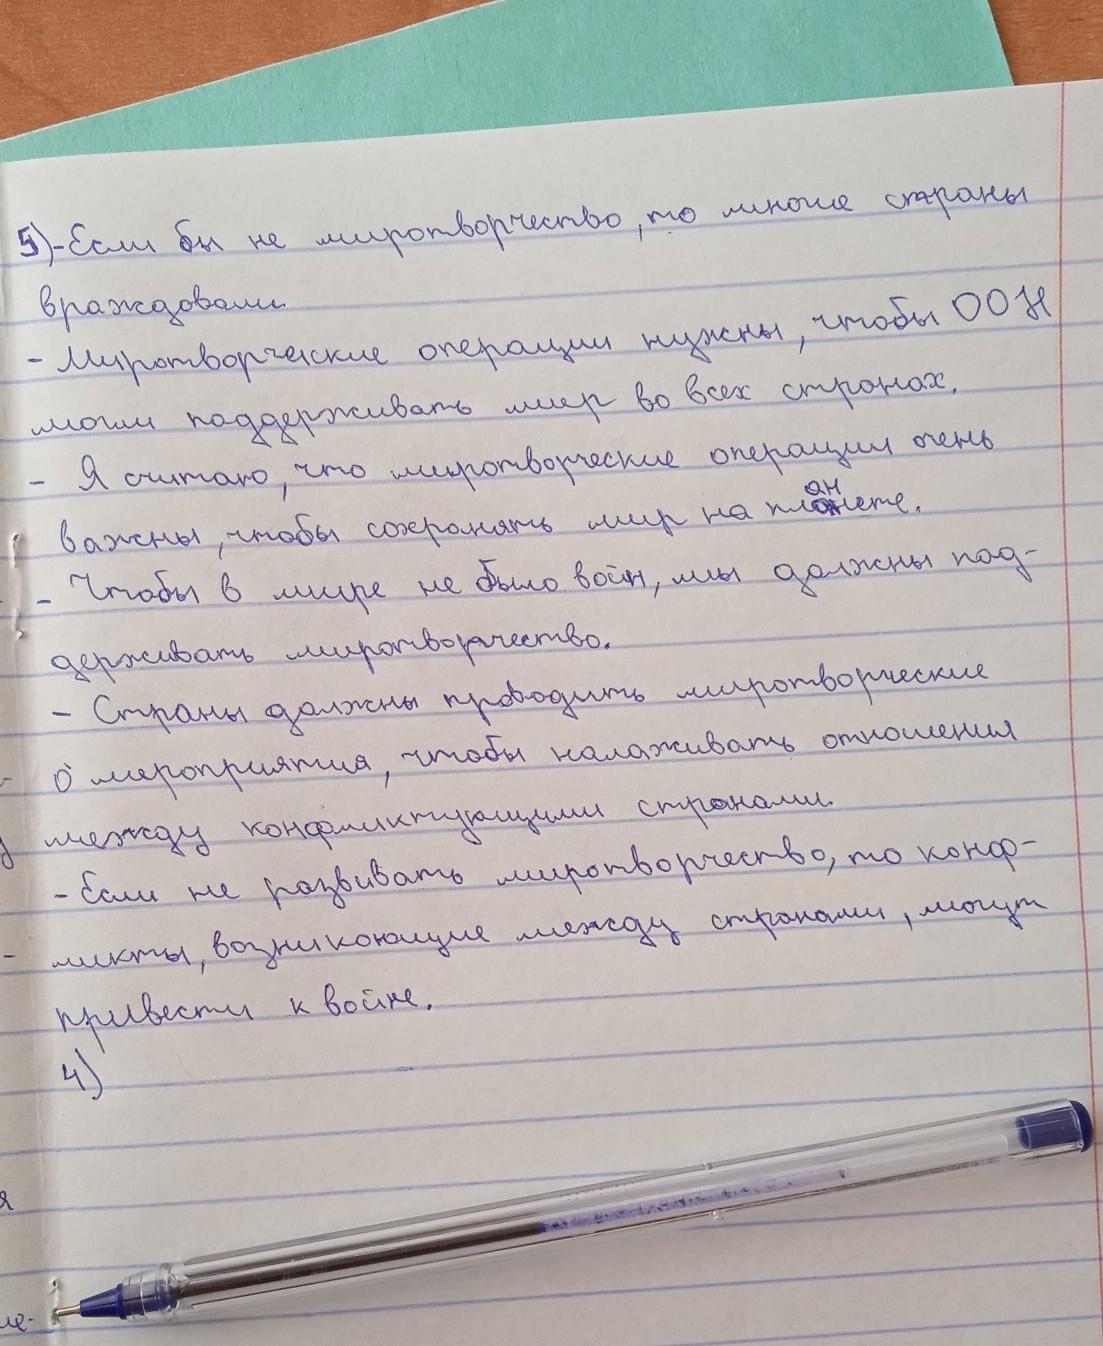 5)-Если бы не миротворчество, то многие страны
враждовали.
- Миротворческие операции нужны, чтобы ООН
могли поддерживать мир во всех странах.
- Я считаю, что миротворческие операции очень
важны, чтобы сохранять мир на планете.
- Чтобы в мире не было войн, мы должны под-
держивать миротворчество.
- Страны должны проводить миротворческие
мероприятия, чтобы налаживать отношения
между конфликтующими странами.
- Если не развивать миротворчество, то конф-
ликты, возникающие между странами, могут
привести к войне.
4)
я